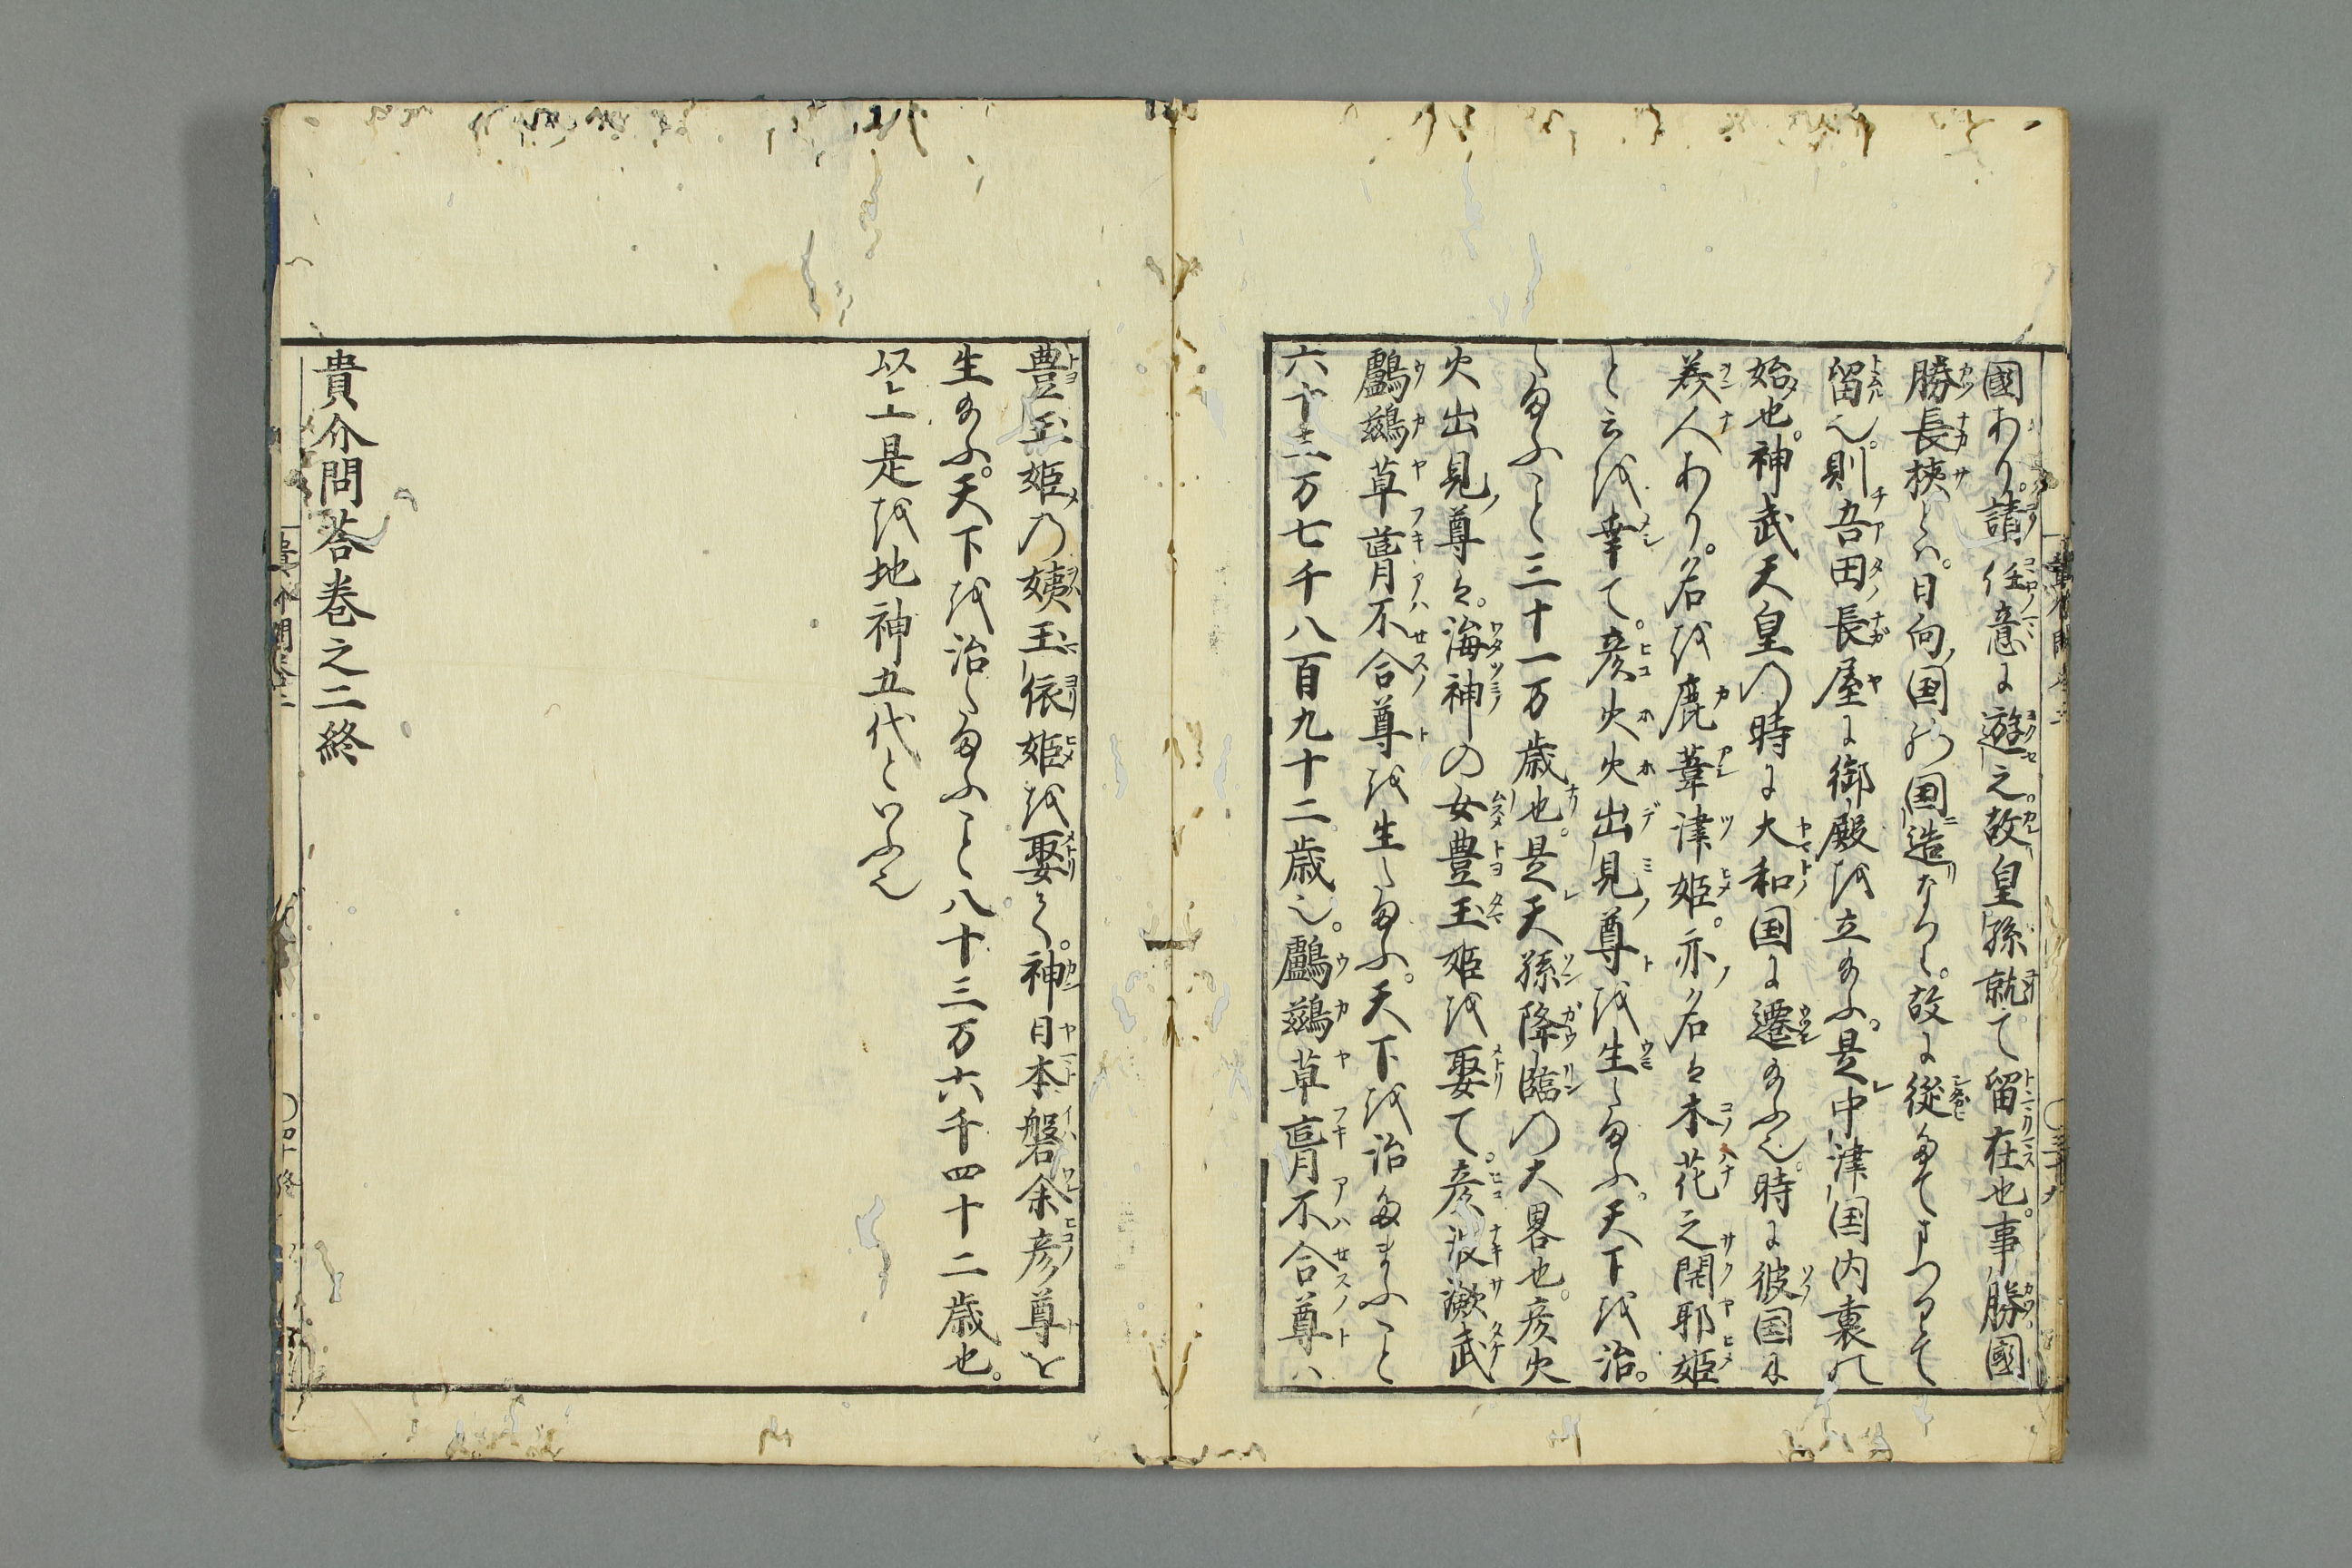 國あり。請任意に遊之。故皇孫就て留在也。事勝國
勝長狹とハ。日向国の国造なり。故に従
留也。則吾田長屋に御殿を立給ふ。是中津国内裏の
始也。神武天皇の時に大和国に遷給ふ也。時に彼国に
美人あり。名を鹿葦津姫。亦ノ名は木花之開耶姫
と云を幸て。彦火火出見尊を生したまふ。天下を治。
したまふこと三十一万歳也。是天孫降臨の大畧也。彦火
火出見尊は。海神の女豊玉姫を娶て。彦波瀲武
鸕鷀草葺不合尊を生したまふ。天下を治たまふこと
六十三万七千八百九十二歳也。鸕鷀草葺不合尊ハ
豊玉姫の姨玉依姫を娶て。神日本磐余彦尊を
生給ふ。天下を治したまふこと八十三万六千四十二歳也。
以上是を地神五代といふ也
貴介問荅巻之二終